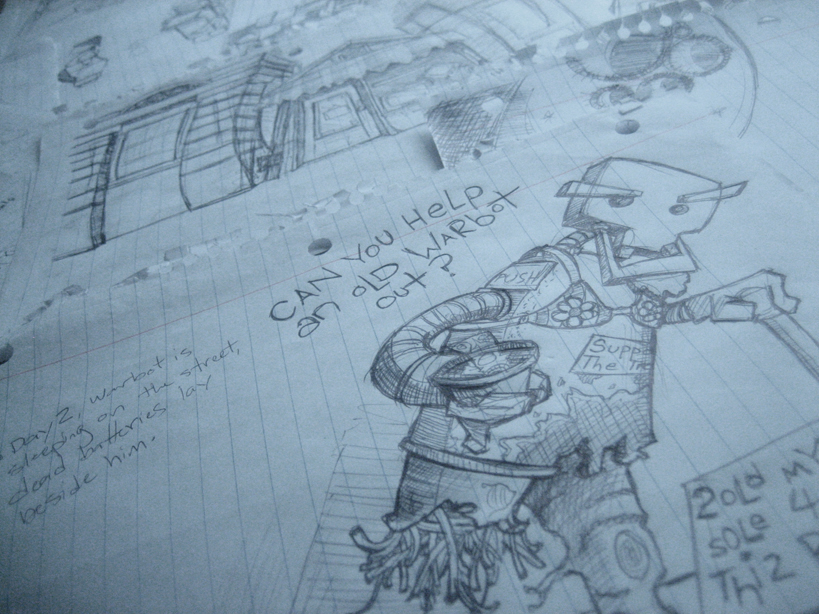 CAN YOU HELP
an OLD WARBOT
out?
PUSH
Supp
The Tr
Day 2, warbot is
sleeping on the street,
dead batteries lay
beside him.
2 old MY
sole 4
Thiz